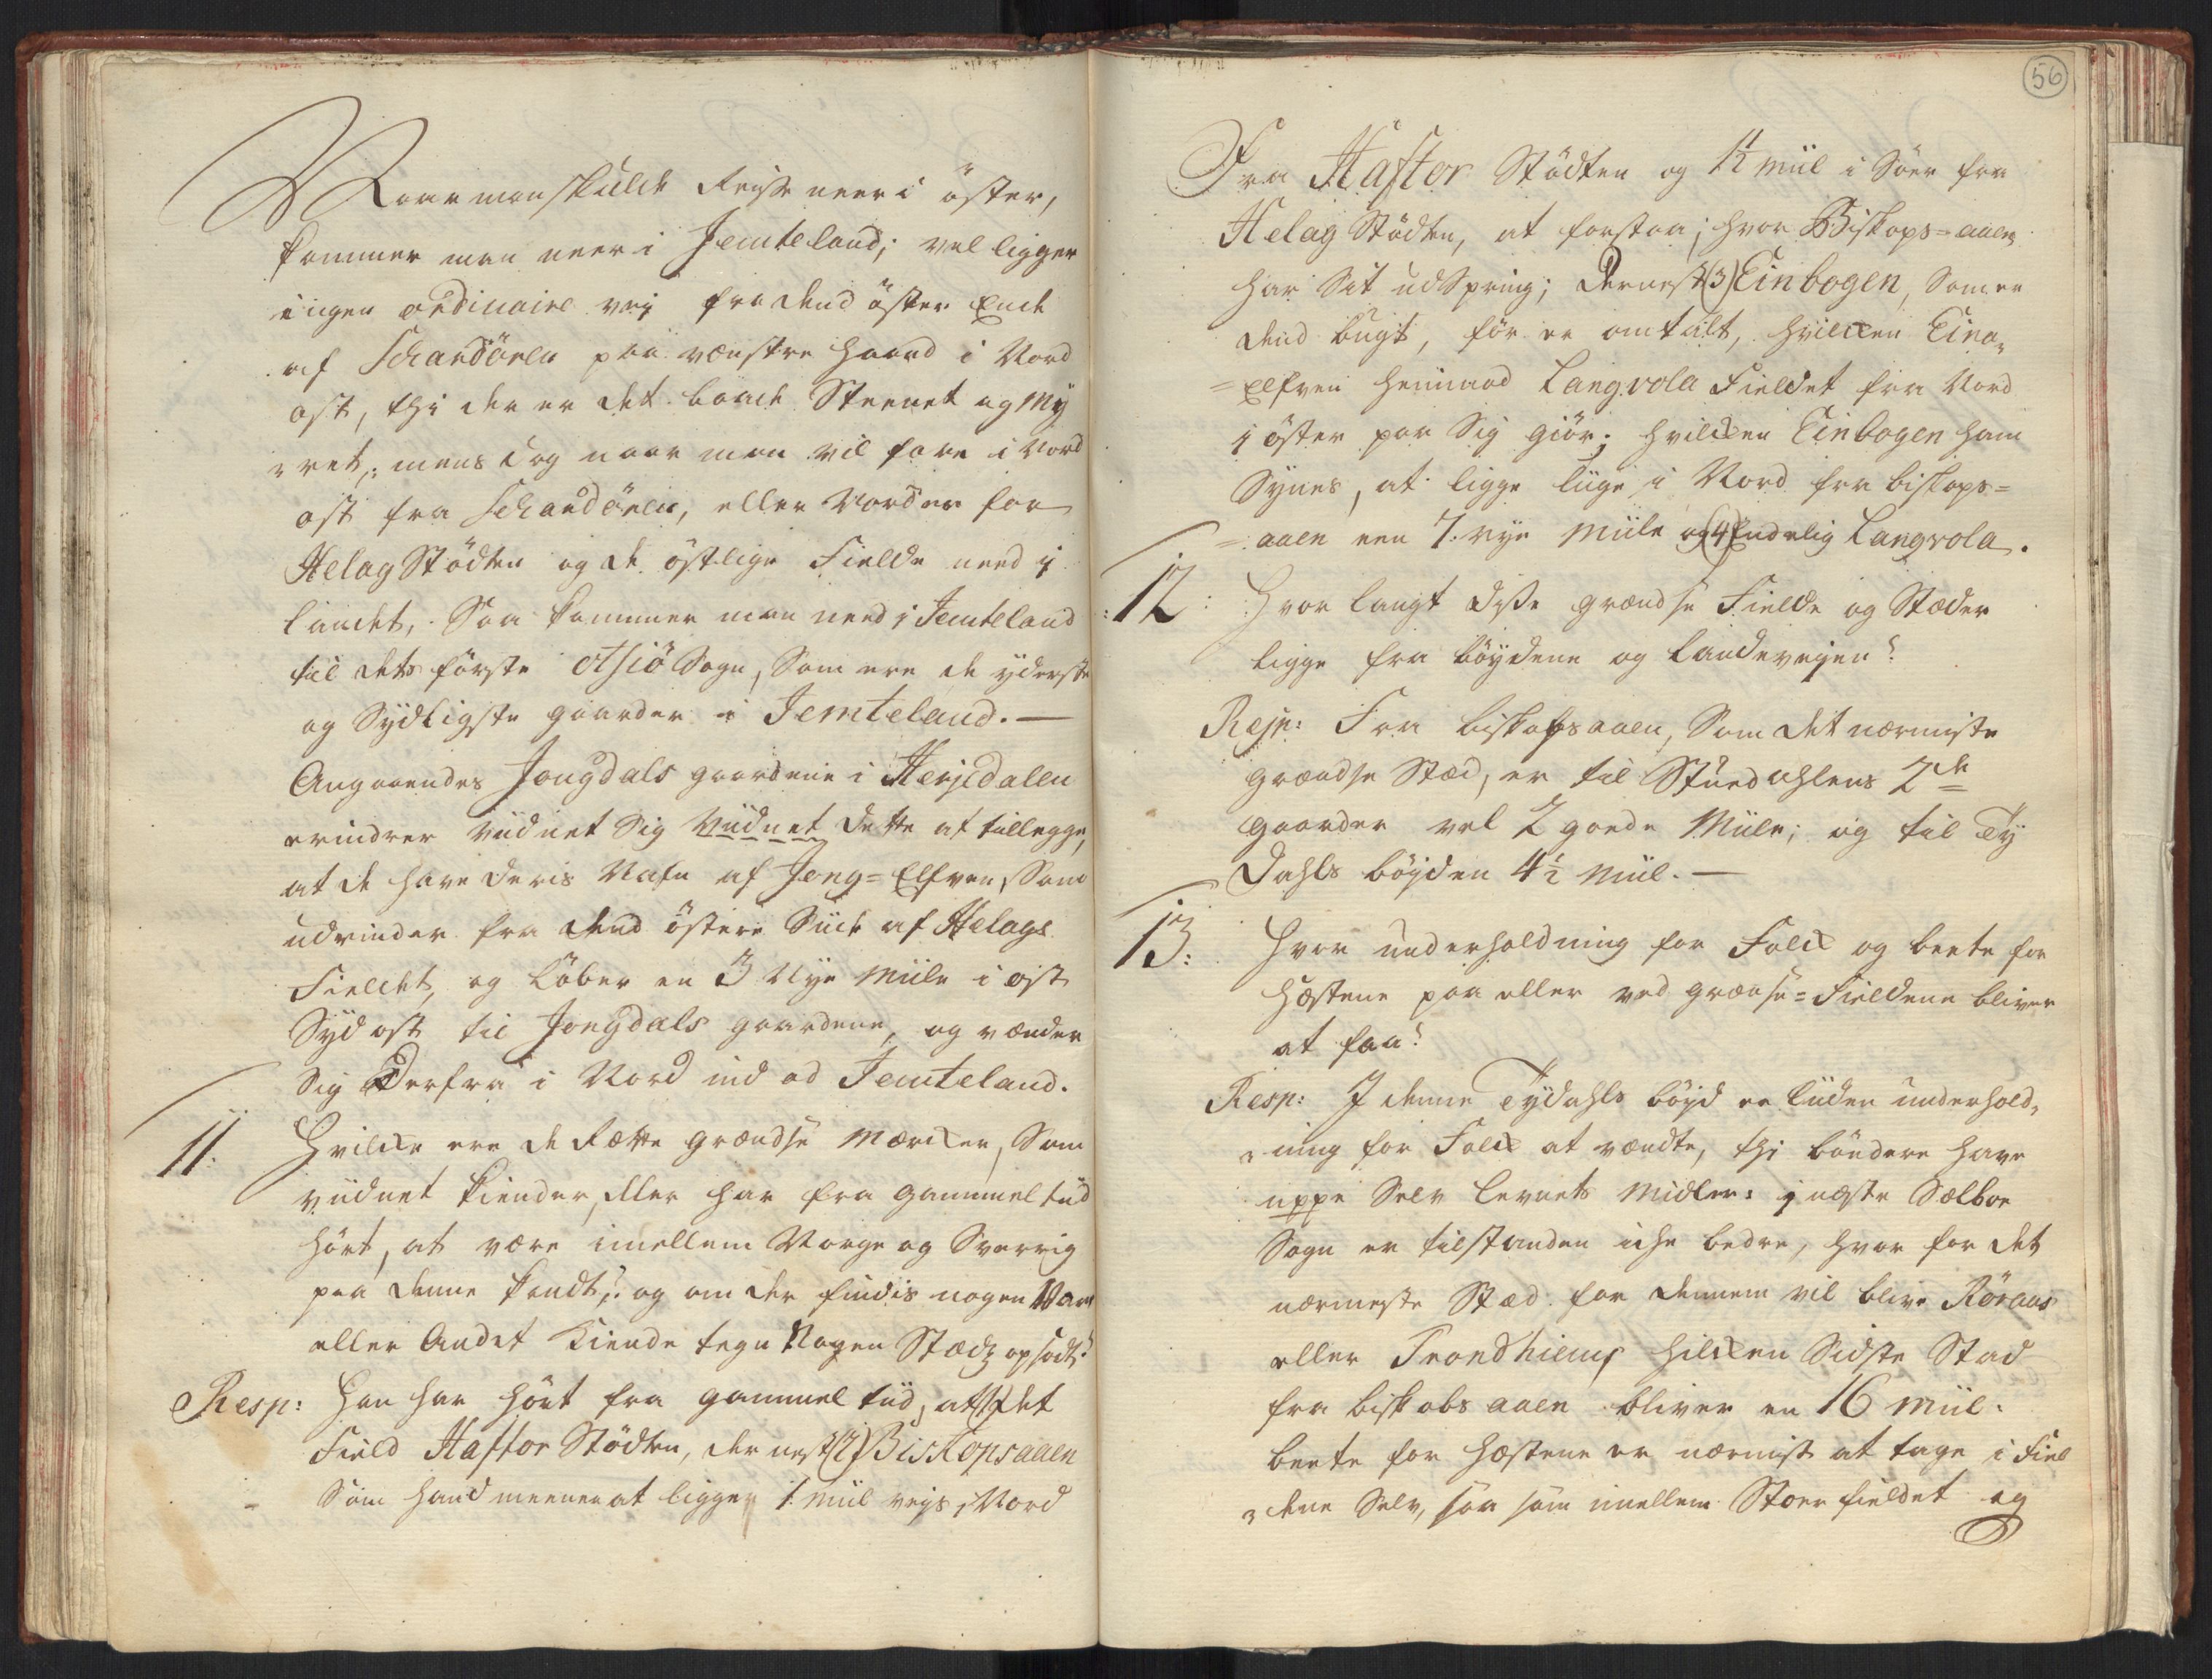 Naar man skulde Reyse neer i öster,
kommer man neer i Jemteland; vel ligger
ingen ordinaire vej fra dend öster Ende
af Schardören paa venstre haand i Nord
ost, thi der er det baade Steenet og My
ret; mens dog naar man vil fare i Nord
ost fra Schardören, eller Norder for
Helag Stödten og de östlige Fielde need i
Landet, Saa kommer man need i Jemteland
til dets förste Assiö Sogn, Som ere de yderste
og Sydligste gaarder i Jemteland. —
Angaaendes Jongdals gaardene i Herjedalen
erindrer viidnet Sig viidnet dette at tillegge,
at de have deris Nafn af Jong=Elfven, Som
udrinder fra dend östere Siide af Helags
Fieldet, og löber en 3 Nye Miile i ost
Syd ost til Jongdals gaardene, og vender
Sig derfra i Nord ind ad Jemteland.
11. Hvilke ere de Rette grændse Mærker, Som
viidnet kiender, eller har fra gammel tiid
hört, at være imellem Norge og Sverrig
paa denne kandt; og om der findis nogen Varde
eller Andet Kiende tegn Nogen Stædz opsadt?
Resp: Han har hört fra gammel tiid, at (1) det
Field Haftor Stödten, der nest (2) Biskopsaaen
Som hand meener at ligger 1 miil vejs i Nord
56
Fra Haftor Stödten og 1½ miil i Söer fra
Helag Stödten, at forstaa; hvor Biskops=aaen
har Sit udSpring; Dernest (3) Einbogen, Som er
dend bugt, för er omtalt, hvilken Eina
=Elfven henimod Langvola Fieldet fra Nord
i öster paa Sig giör; hvilken Einbogen ham
Synes, at ligge liige i Nord fra biskops=
=aaen een 7. nye Miile og (4) Endelig Langvola.
12: Hvor langt disse grændse Fielde og Stæder
ligge fraböydene og landevejen?
Resp: Fra biskopsaaen, Som det nærmiste
grændse Stæd, er til Stuedahlens 2de
gaarder vel 2 goede Miile; og til Ty
Dahls böyden 4½ Miil. —
13: Hvor underholdning for Folk og beete for
Hestene paa eller ved grænse=Fieldene bliver
at faa?
Resp: I denne Tydahls böyd er liiden underhold,
ning for Folk at vendte, thi bönderne have
neppe Selv levnets Midler: i neste Selboe
Sogn er tilstanden icke bedre, hvor for det
nærmeste Stæd for dennem vil blive Röraas
eller Trondhiem, hvilken Sidste Stad
fra biskobs aaen bliver en 16 Miil.
beete for Hestene er nærmist at tage i Fiel
dene Selv, saa som imellem Stoer fieldet og